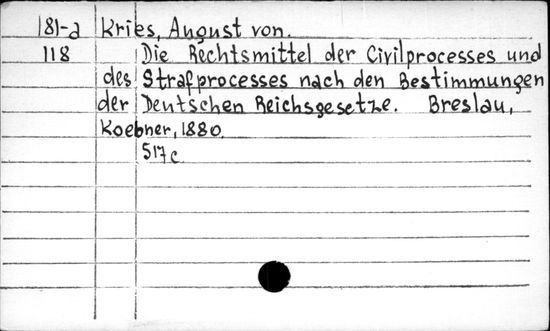 181-a Kries, August von.
118 Die Rechtsmittel der Civilprocesses und
des Strafprocesses nach den Bestimmungen
der Deutschen Reichsgesetze. Breslau,
Koebner, 1880.
517c